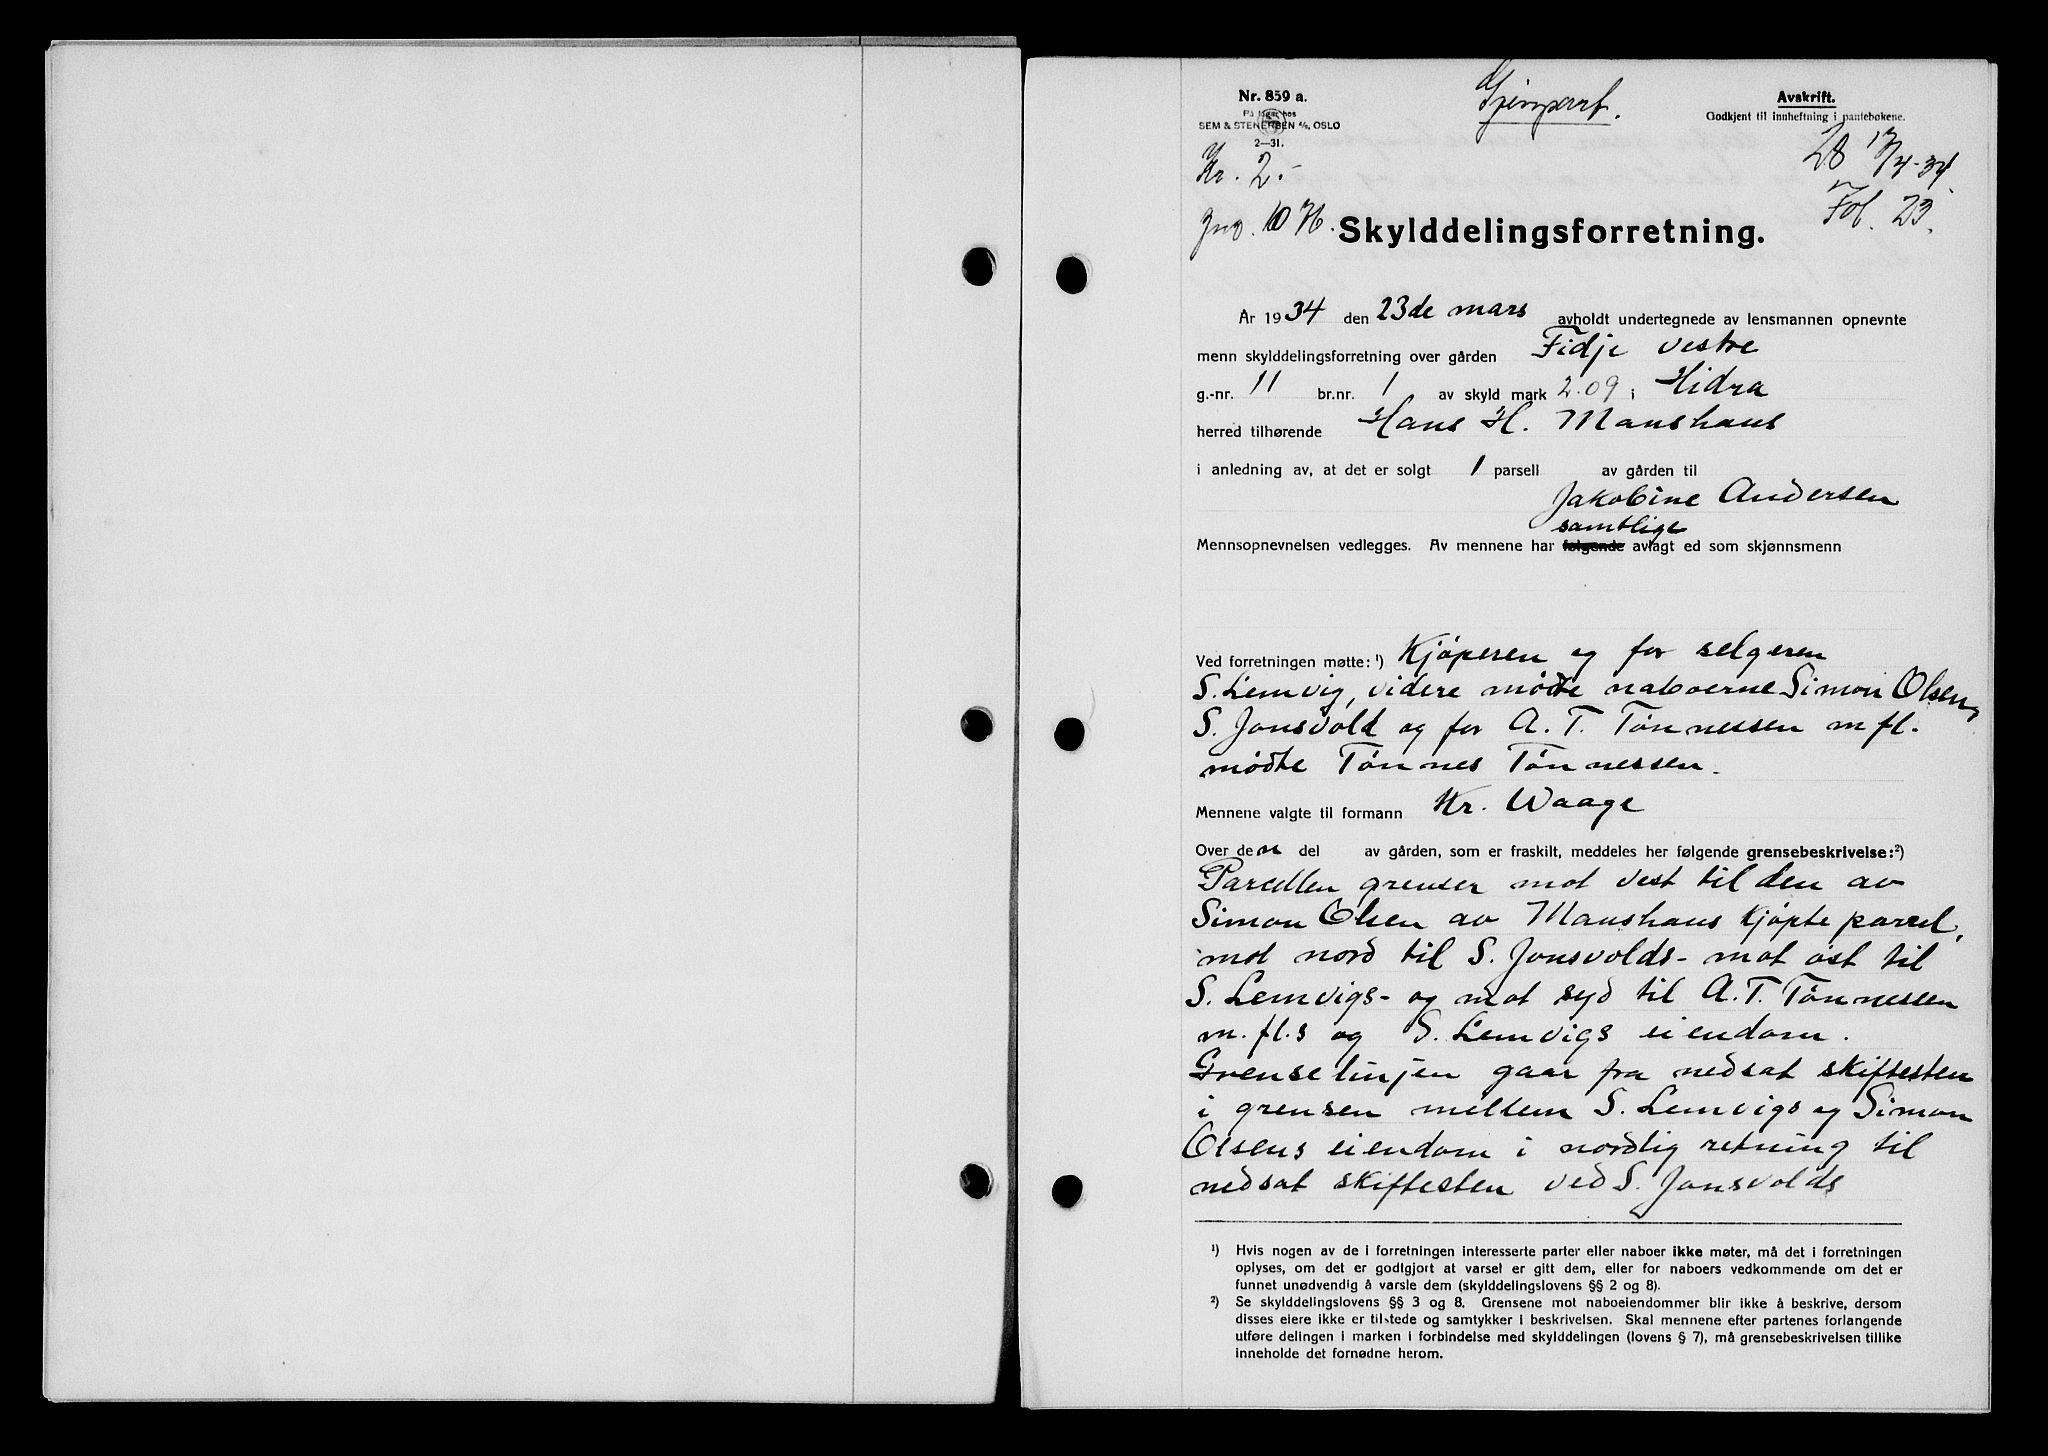 Nr. 859 a.
På lager hos
SEM & STENERSEN A/S, OSLO
2—31.
Gjenpart.
Avskrift.
Godkjent til innheftning i pantebøkene.
Kr. 2.-
28 17/4-34
Fol. 23.
Skylddelingsforretning.
År 1934 den 23de mars avholdt undertegnede av lensmannen opnevnte
menn skylddelingsforretning over gården Fidje vestre
g.-nr. 11 br.nr. 1 av skyld mark 2.09 i Hidra
herred tilhørende Hans H. Maushaus
i anledning av, at det er solgt 1 parsell av gården til
Jakobine Andersen
samtlige
Mennsopnevnelsen vedlegges. Av mennene har følgende avlagt ed som skjønnsmenn
Ved forretningen møtte: ¹) Kjøperen og for selgeren
S. Lemvig, videre mødte naboerne Simon Olsen,
S. Jonsvold og for A. T. Tønnessen m fl.
mødte Tønnes Tønnessen.
Mennene valgte til formann Kr. Waage
Over den del av gården, som er fraskilt, meddeles her følgende grensebeskrivelse: ²)
Parcellen grenser mot vest til den av
Simon Olsen av Maushaus kjøpte parcel,
mot nord til S. Jonsvolds- mot øst til
S. Lemvigs- og mot syd til A. T. Tønnessen
m. fl.s og S. Lemvigs eiendom.
Grenselinjen gaar fra nedsat skiftesten
i grensen mellem S. Lemvigs og Simon
Olsens eiendom i nordlig retning til
nedsat skiftesten ved S. Jonsvolds
¹) Hvis nogen av de i forretningen interesserte parter eller naboer ikke møter, må det i forretningen
oplyses, om det er godtgjort at varsel er gitt dem, eller for naboers vedkommende om det er
funnet unødvendig å varsle dem (skylddelingslovens §§ 2 og 8).
²) Se skylddelingslovens §§ 3 og 8. Grensene mot naboeiendommer blir ikke å beskrive, dersom
disses eiere ikke er tilstede og samtykker i beskrivelsen. Skal mennene efter partenes forlangende
utføre delingen i marken i forbindelse med skylddelingen (lovens § 7), må grensebeskrivelsen tillike
inneholde det fornødne herom.